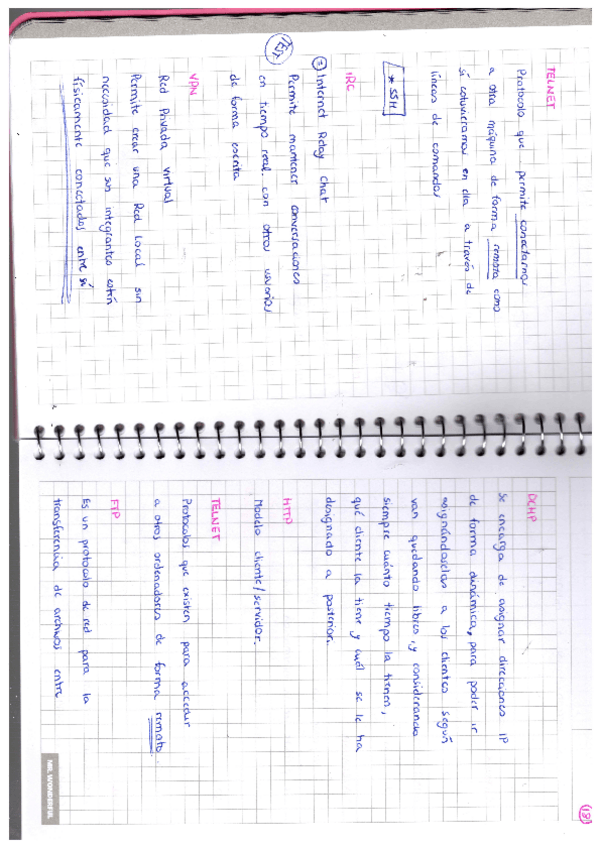 TELNET
Protocolo que permite conectarnos
a otra máquina de forma remota como
si estuvieramos en ella a través de
líneas de comandos
* SSH
IRC
Internet Relay Chat
Permite mantener conversaciones
en tiempo real con otros usuarios
de forma escrita
VPN
Red Privada Virtual
Permite crear una Red Local sin
necesidad que sus integrantes estén
físicamente conectados entre sí
DCHP
Se encarga de asignar direcciones IP
de forma dinámica, para poder ir
asignándoselas a los clientes según
van quedando libres, y considerando
siempre cuánto tiempo la tienen,
qué cliente la tiene y cuál se le ha
designado a posterior.
HTTP
Modelo cliente/servidor.
TELNET
Protocolos que existen para acceder
a otros ordenadores de forma remota.
FTP
Es un protocolo de red para la
transferencia de archivos entre
MR. WONDERFUL